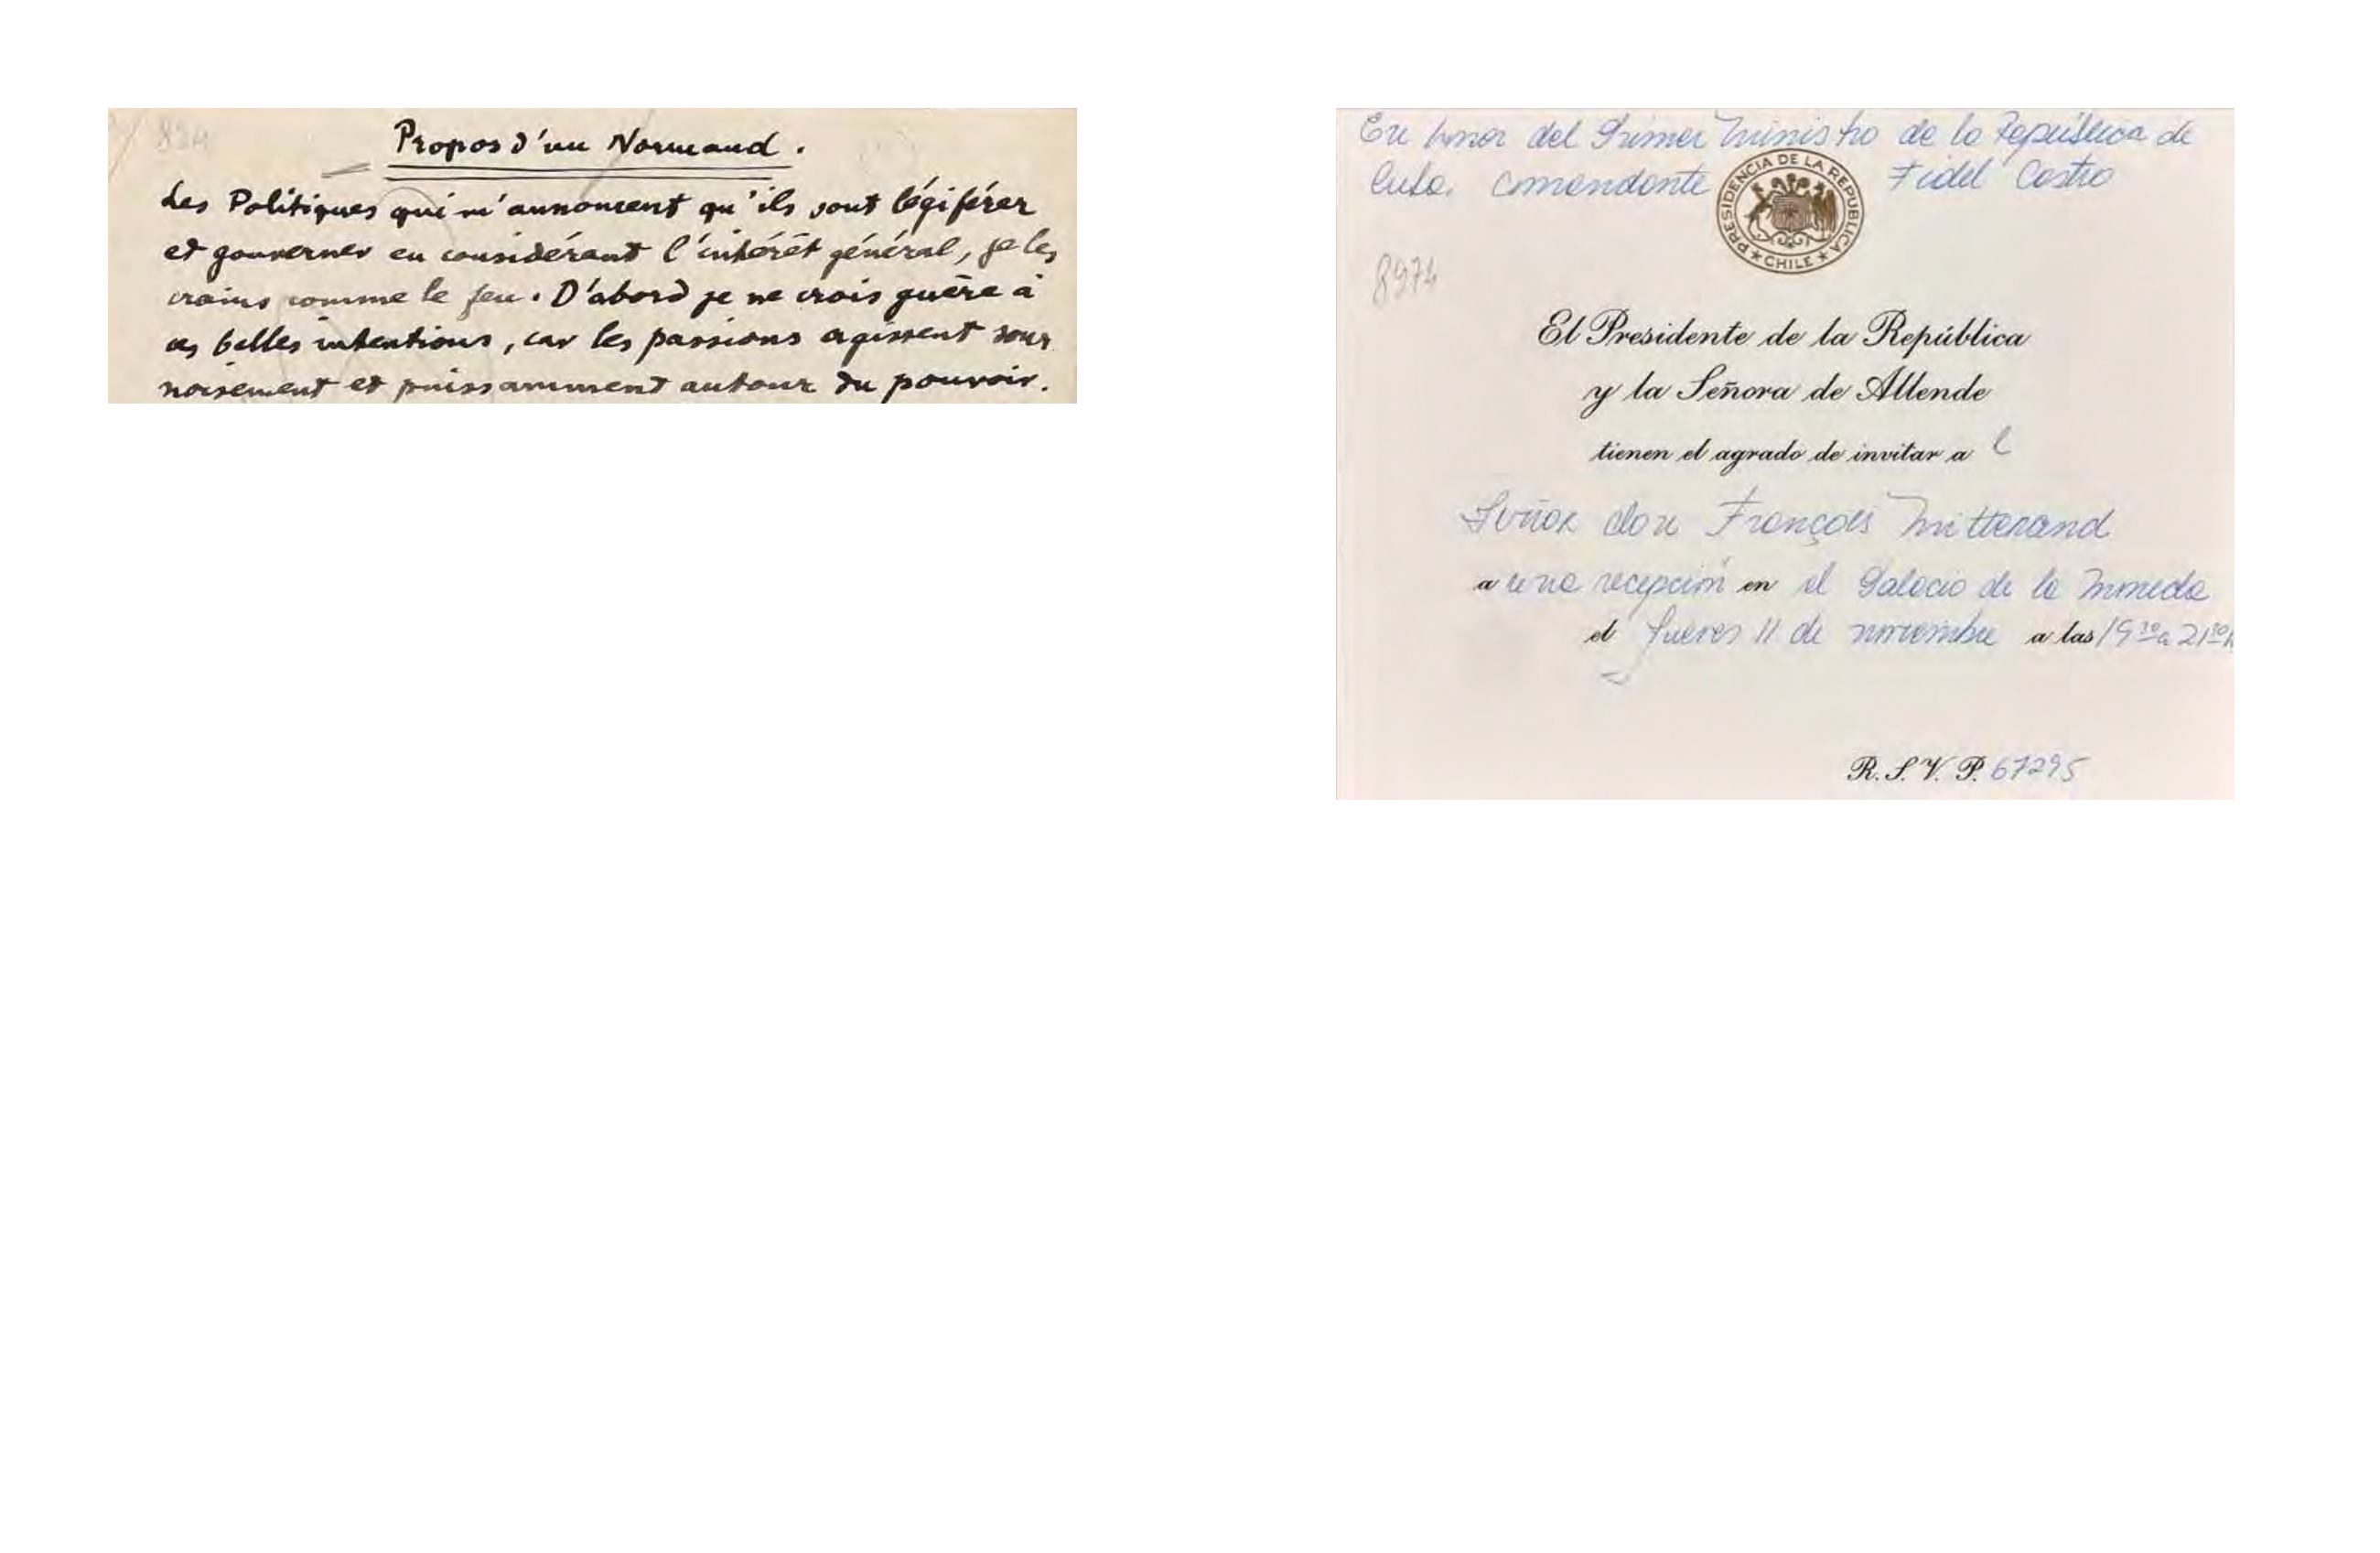 894
Propos d'un Normand.
Les Politiques qui m'annoncent qu'ils vont légiférer
et gouverner en considérant l'intérêt général, je les
crains comme le feu. D'abord je ne crois guère à
ces belles intentions, car les passions agissent sour
noisement et puissamment autour du pouvoir.
En honor del Primer Ministro de la República de
Cuba. Comandante Fidel Castro
PRESIDENCIA DE LA REPUBLICA
★ CHILE ★
8974
El Presidente de la República
y la Señora de Allende
tienen el agrado de invitar a l
Señor don François Mitterand
a una recepción en el Palacio de la Moneda
el Jueves 11 de noviembre a las 19³⁰ a 21³⁰ h
R. S. V. P. 67295